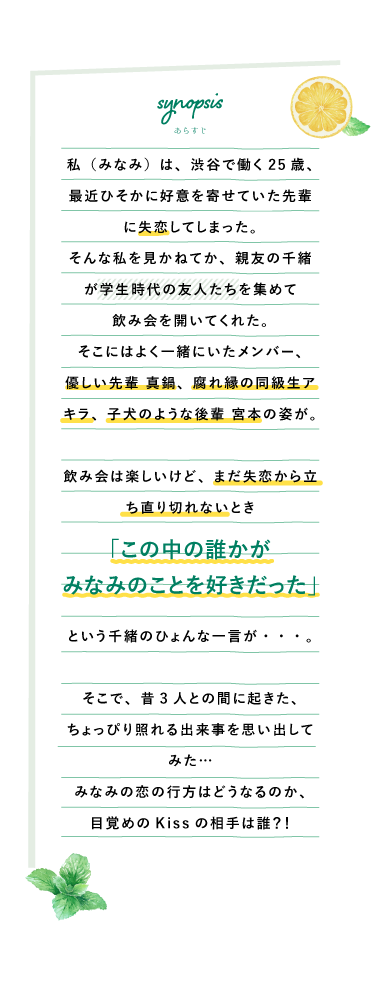 synopsis
あらすじ
私（みなみ）は、渋谷で働く25歳、
最近ひそかに好意を寄せていた先輩
に失恋してしまった。
そんな私を見かねてか、親友の千緒
が学生時代の友人たちを集めて
飲み会を開いてくれた。
そこにはよく一緒にいたメンバー、
優しい先輩 真鍋、腐れ縁の同級生ア
キラ、子犬のような後輩 宮本の姿が。
飲み会は楽しいけど、まだ失恋から立
ち直り切れないとき
「この中の誰かが
みなみのことを好きだった」
という千緒のひょんな一言が・・・。
そこで、昔3人との間に起きた、
ちょっぴり照れる出来事を思い出して
みた…
みなみの恋の行方はどうなるのか、
目覚めのKissの相手は誰?!